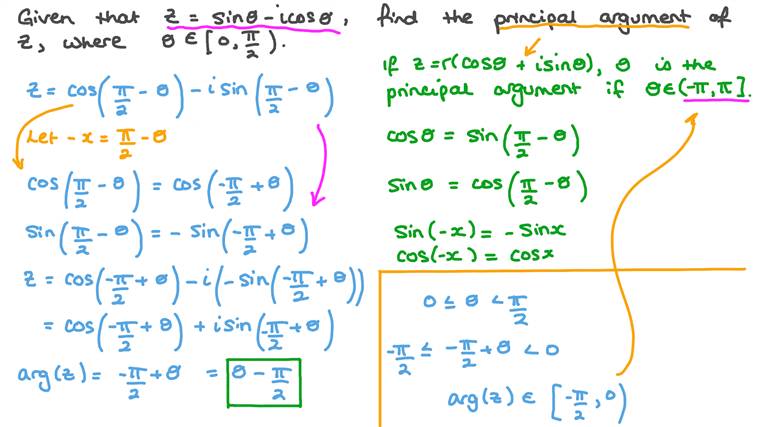 Given that z = sinθ - icosθ, find the principal argument of
z, where θ ∈ [0, π/2).
z = cos(π/2 - θ) - i sin(π/2 - θ)
Let -x = π/2 - θ
cos(π/2 - θ) = cos(-π/2 + θ)
sin(π/2 - θ) = - sin(-π/2 + θ)
z = cos(-π/2 + θ) - i(-sin(-π/2 + θ))
= cos(-π/2 + θ) + i sin(-π/2 + θ)
arg(z) = -π/2 + θ = θ - π/2
if z = r(cosθ + isinθ), θ is the
principal argument if θ ∈ (-π, π].
cosθ = sin(π/2 - θ)
sinθ = cos(π/2 - θ)
sin(-x) = - sinx
cos(-x) = cosx
0 ≤ θ < π/2
-π/2 ≤ -π/2 + θ < 0
arg(z) ∈ [-π/2, 0)